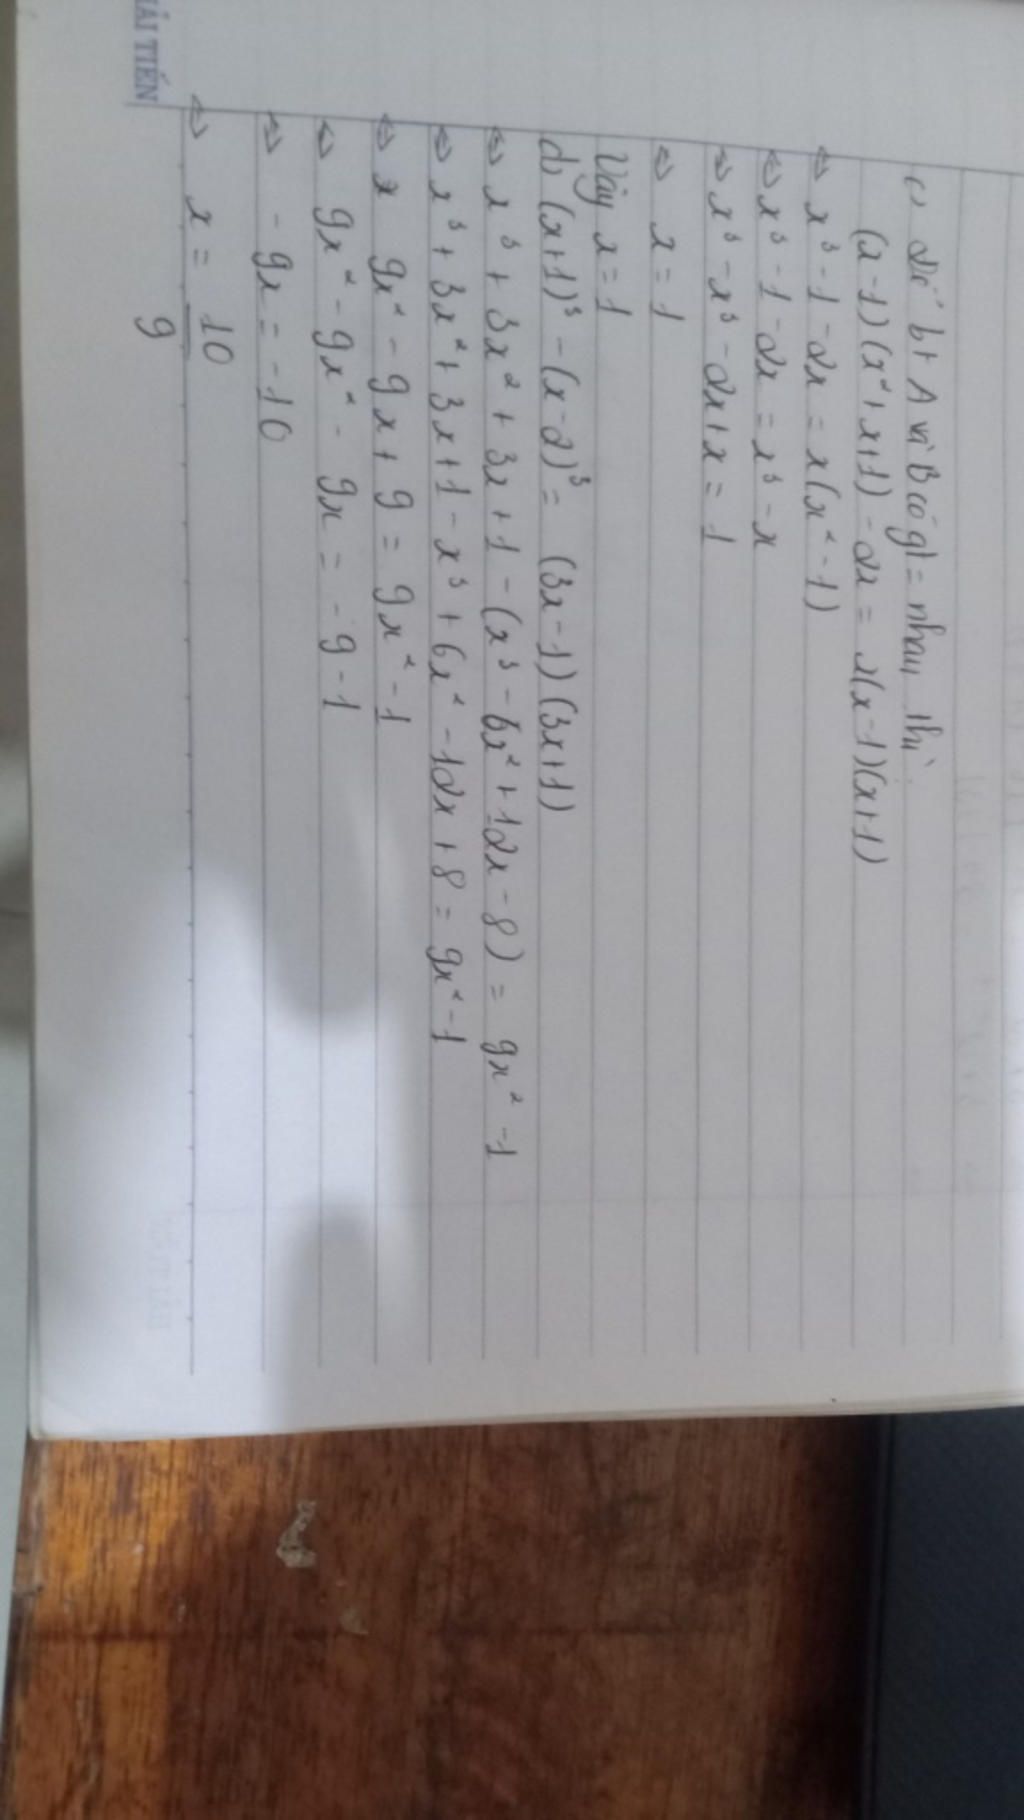 c) Để bt A và B có gt = nhau thì.
(x-1)(x²+x+1) - 2x = x(x-1)(x+1)
⇔ x³ - 1 - 2x = x(x² - 1)
⇔ x³ - 1 - 2x = x³ - x
⇔ x³ - x³ - 2x + x = 1
⇔ x = 1
Vậy x = 1
d) (x+1)³ - (x-2)³ = (3x-1)(3x+1)
⇔ x³ + 3x² + 3x + 1 - (x³ - 6x² + 12x - 8) = 9x² - 1
⇔ x³ + 3x² + 3x + 1 - x³ + 6x² - 12x + 8 = 9x² - 1
⇔ 9x² - 9x + 9 = 9x² - 1
⇔ 9x² - 9x² - 9x = -9 - 1
⇔ - 9x = -10
⇔ x = 10
9
HẢI TIẾN